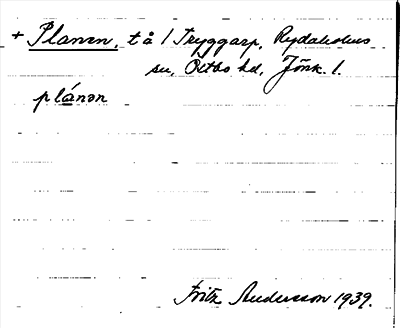 + Planen, t å 1 Tryggarp, Rydaholms
sn, Östbo hd, Jönk. l.
plánən
Fritz Andersson 1939.